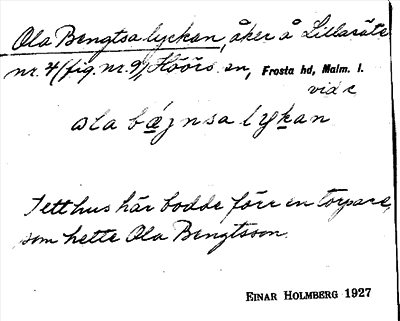 Ola Bengtsa lyckan, åker å Lillasäte
nr. 4 (fig. nr. 9), Höörs sn, Frosta hd, Malm. l.
vid c
ola bǽŋnsa lykan
I ett hus här bodde förr en torpare,
som hette Ola Bengtsson.
EINAR HOLMBERG 1927